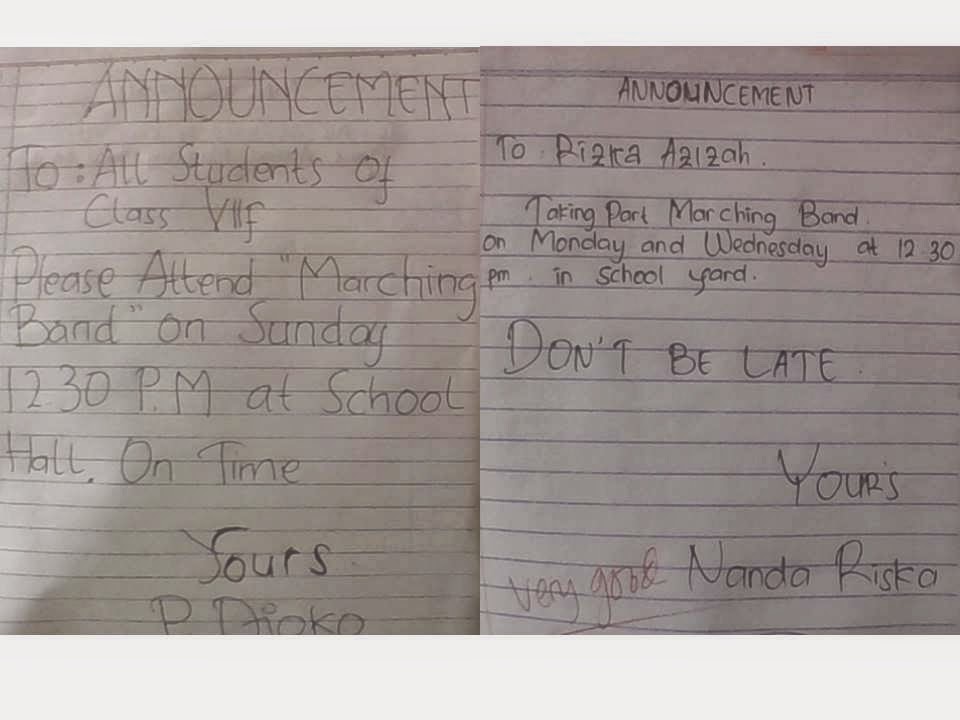 ANNOUNCEMENT
To : All Students Of
Class VIIf
Please Attend "Marching
Band" on Sunday
12.30 P.M at School
Hall. On Time
Yours
P Djoko
ANNOUNCEMENT
To : Rizka Azizah.
Taking Part Marching Band.
on Monday and Wednesday at 12.30
pm. in school yard.
DON'T BE LATE.
YOUR'S
Nanda Riska
very good